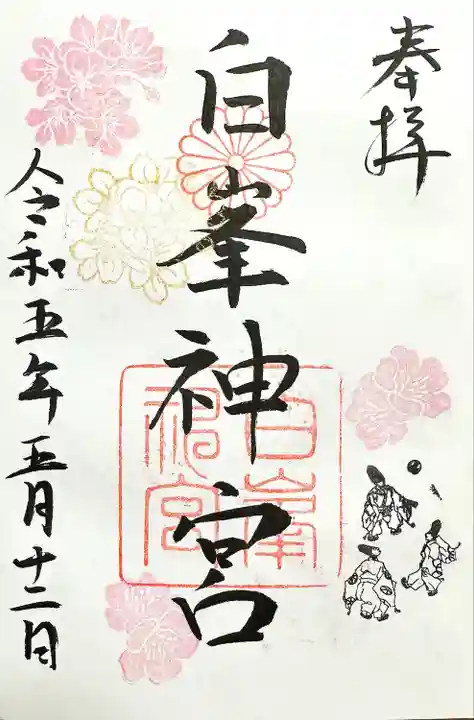 奉拝
白峯神宮
白峯神宮
令和五年五月十二日